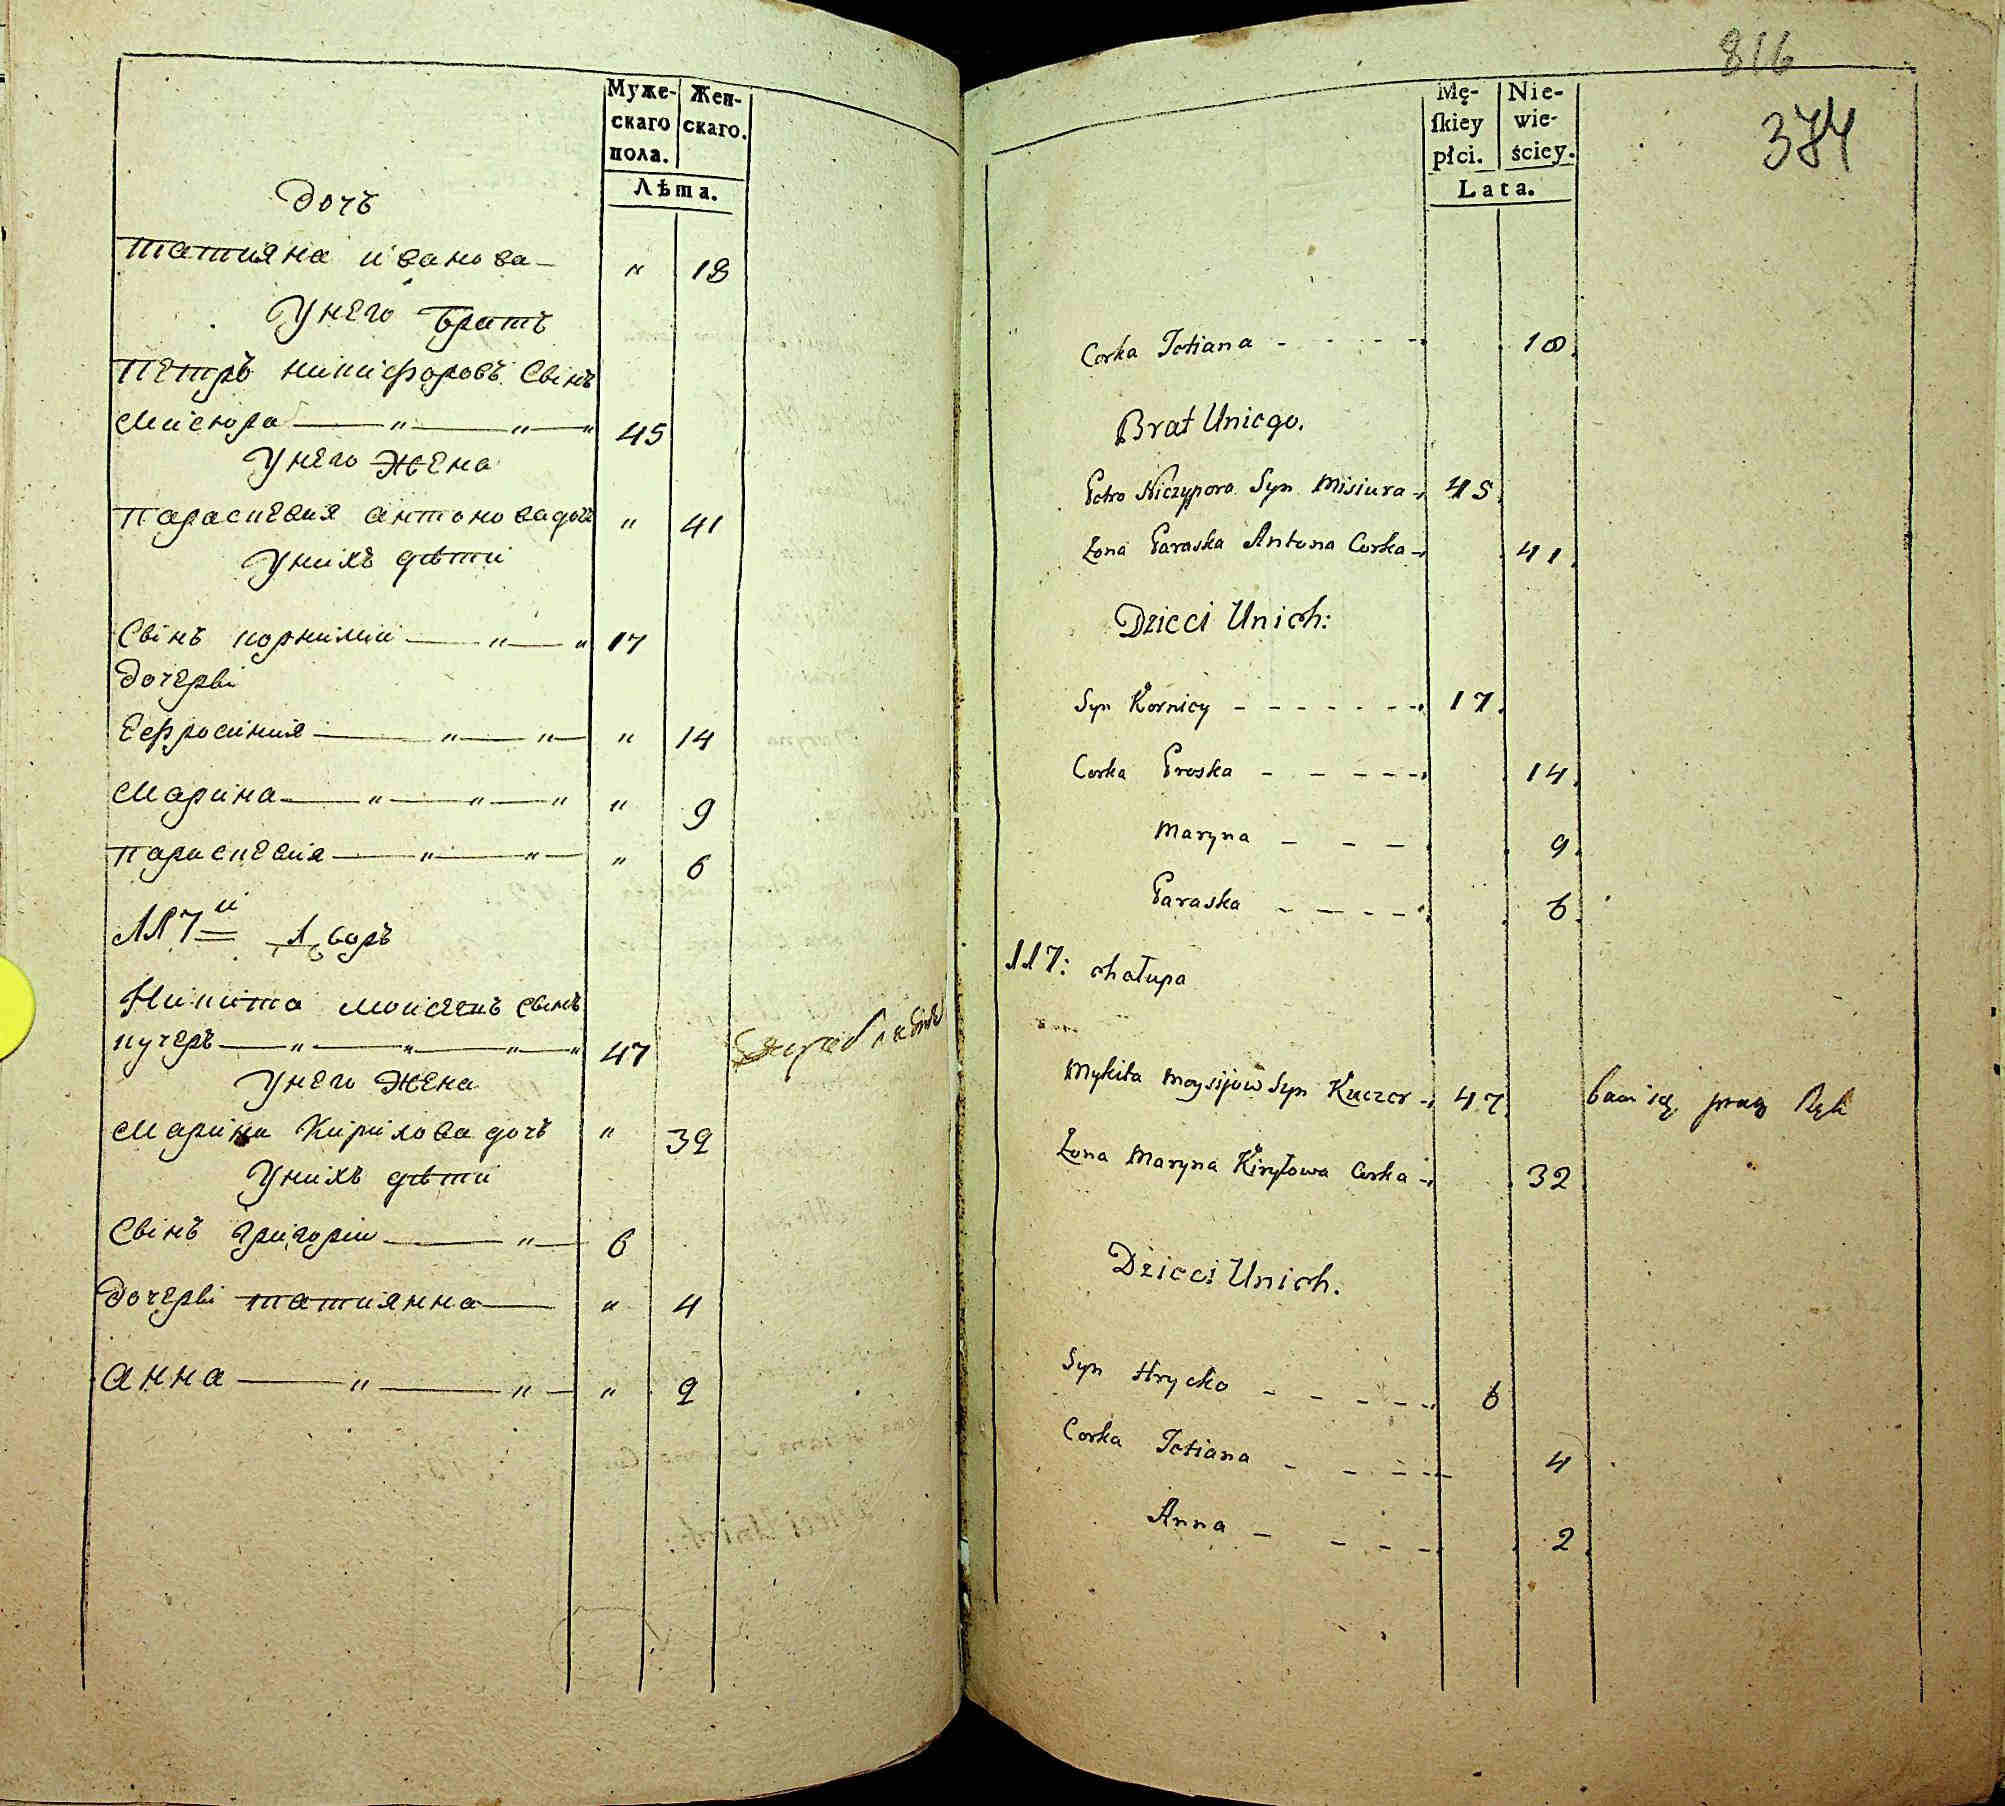 Муже-
скаго
пола.
Жен-
скаго.
Лѣта.
дочъ
татияна иванова — " 18
У него братъ
Петръ никифоровъ Синъ
Мисюра — " — " — " 45
У него Жена
Параскевия антонова дочъ " 41
У нихъ дѣти
Синъ корнилий — " — " 17
дочери
Ефросиния — " — " — " 14
Марина — " — " — " " 9
параскевия — " — " — " 6
117й Дворъ
Никита моисеевъ синъ
кучеръ — " — " — " — " 47
У него Жена
Марина Кирилова дочъ " 32
У нихъ дѣти
Синъ григорий — " — 6
дочери татиянна — " 4
анна — " — " — " 2
816
374
Mę-
ſkiey
płci.
Nie-
wie-
ściey.
Lata.
Corka Tetiana - - - - 18.
Brat Uniego.
Petro Niczypora Syn Misiura - 45.
Żona Paraska Antona Corka - 41.
Dzieci Unich:
Syn Korniey - - - - - - 17.
Corka Proska - - - - - 14.
Maryna - - - 9.
Paraska - - - - 6.
117: chałupa
Mykita Moysijow Syn Kuczer - 47.
Żona Maryna Kiryłowa Corka - 32
Dzieci Unich.
Syn Hrycko - - - - - 6
Corka Tetiana - - - - 4
Anna - - - - - 2